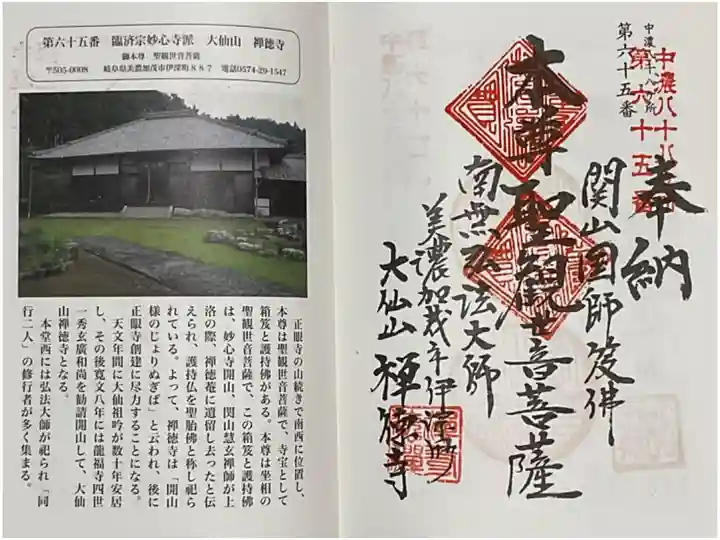 第六十五番　臨済宗妙心寺派　大仙山　禅徳寺
御本尊　聖観世音菩薩
〒505-0008　岐阜県美濃加茂市伊深町887　電話0574-29-1547
正眼寺の山続きで南西に位置し、
本尊は聖観世音菩薩で、寺宝として
箱笈と護持佛がある。本尊は坐相の
聖観世音菩薩で、この箱笈と護持佛
は、妙心寺開山、関山慧玄禅師が上
洛の際、禅徳菴に遺留し去ったと伝
えられ、護持仏を聖胎佛と称し祀ら
れている。よって、禅徳寺は「開山
様のじょりぬぎば」と云われ、後に
正眼寺創建に尽力することになる。
天文年間に大仙祖吟が数十年安居
し、その後寛文八年には龍福寺四世
一秀玄廣和尚を勧請開山して、大仙
山禅徳寺となる。
本堂西には弘法大師が祀られ「同
行二人」の修行者が多く集まる。
中濃八十八ヶ所
第六十五番
中濃八十八
第六十五番
奉納
関山国師笈佛
本尊聖観世音菩薩
南無弘法大師
美濃加茂市伊深町
大仙山禅徳寺